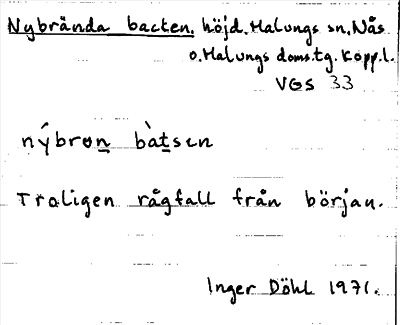 Nybrända backen, höjd. Malungs sn, Nås
o. Malungs doms.tg. Kopp.l.
VGS 33
nýbron bàtsen
Troligen rågfall från början.
Inger Döhl 1971.